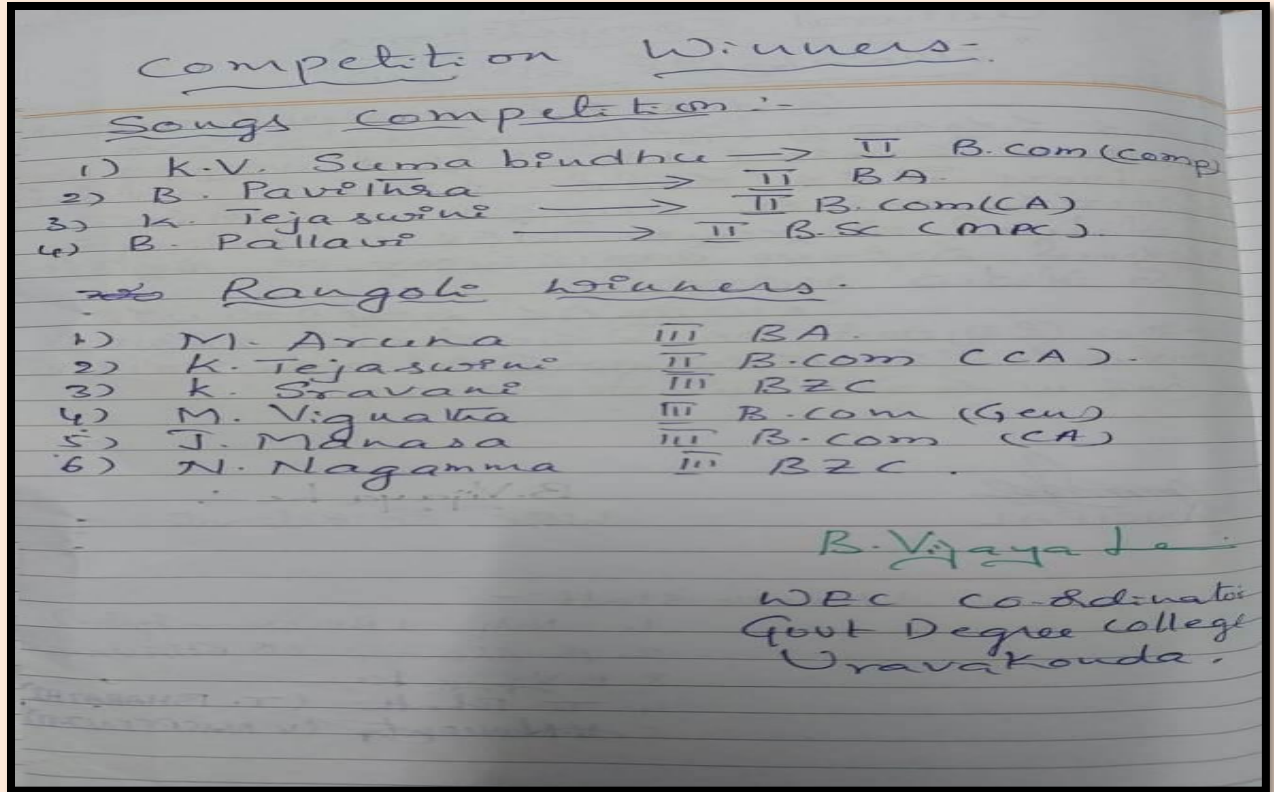 Competition Winners-
Songs Competition :-
1) K.V. Suma bindhu → II B.com (comp)
2) B. Pavithra → II BA.
3) K. Tejaswini → II B.com (CA)
4) B. Pallavi → II B.Sc (MPC).
Rangoli winners.
1) M. Aruna III BA.
2) K. Tejaswini II B.com (CA).
3) K. Sravani III BZC
4) M. Vignatha III B.com (Gen)
5) J. Manasa III B.com (CA)
6) N. Nagamma III BZC.
B. Vijaya
WEC Co-ordinator
Govt Degree college
Uravakonda.